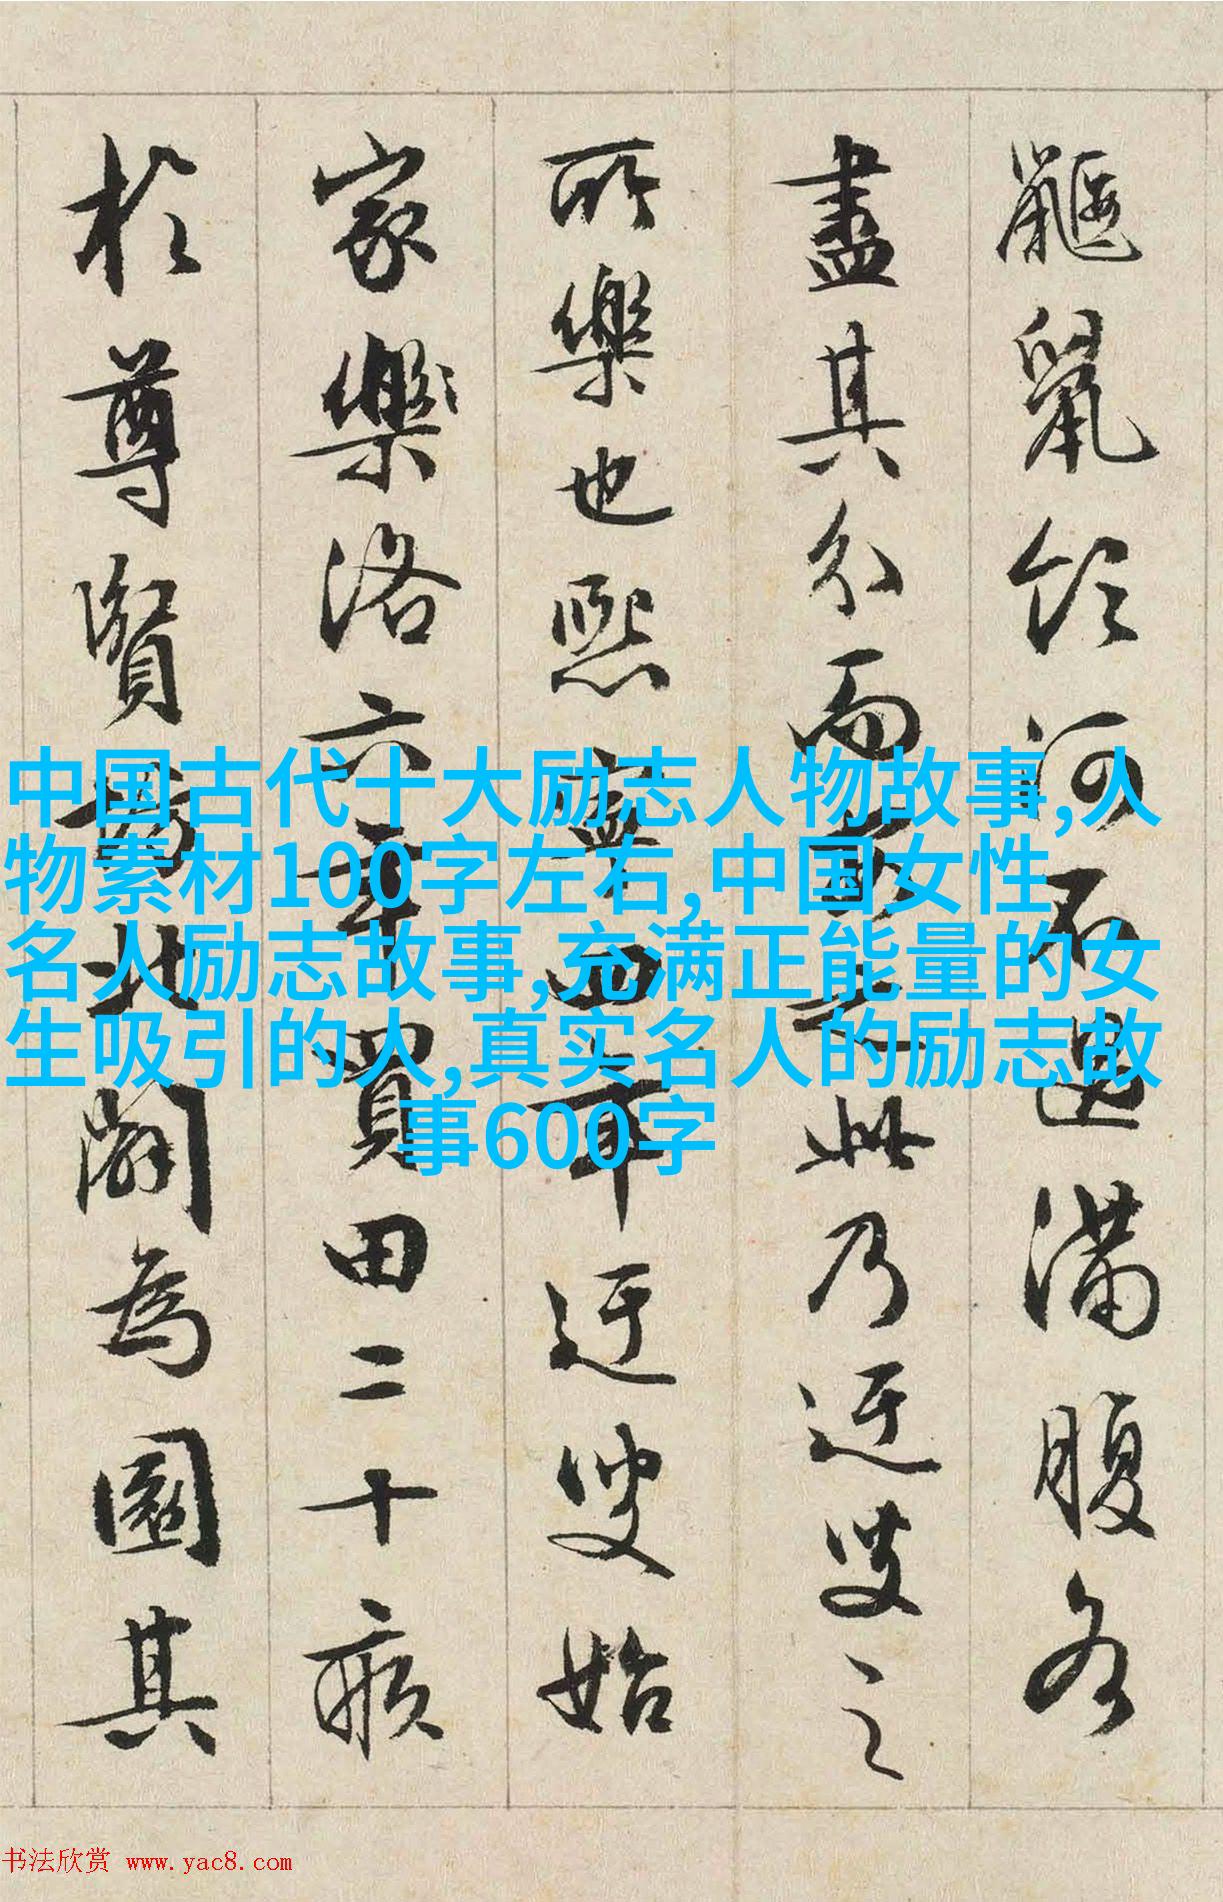 鼴鼠飲河不過滿腹各
盡其分而安之此乃迂叟之
所樂也熙寧四年迂叟始
家樂洛六年買田二十畝
於尊賢坊北闢為園其
中国古代十大励志人物故事,人
物素材100字左右,中国女性
名人励志故事,充满正能量的女
生吸引的人,真实名人的励志故
事600字
书法欣赏 www.yac8.com